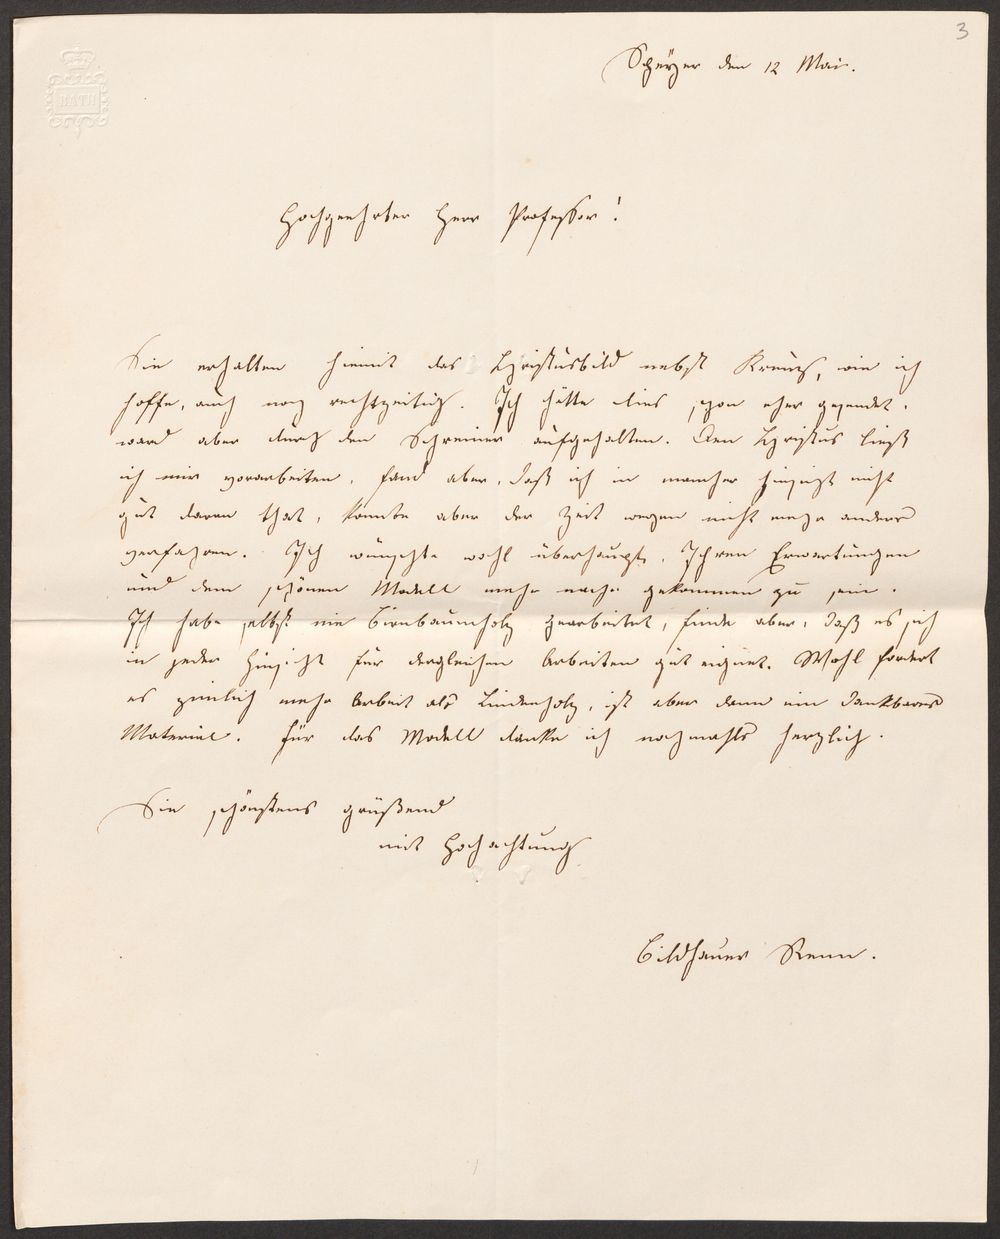 3
BATH
Speyer den 12 Mai.
Hochgeehrter Herr Professor!
Sie erhalten hiemit das Christusbild nebst Kreuz, wie ich
hoffe, auch noch rechtzeitig. Ich hätte dies schon eher gesendet,
ward aber durch den Schreiner aufgehalten. Den Christus ließ
ich mir vorarbeiten, fand aber, daß ich in mancher Hinsicht nicht
gut daran that, konnte aber der Zeit wegen nicht mehr anders
verfahren. Ich wünschte wohl überhaupt, Ihren Erwartungen
und dem schönen Modell mehr nachgekommen zu sein.
Ich habe selbst nie Birnbaumholz gearbeitet, finde aber, daß es sich
in jeder Hinsicht für dergleichen Arbeiten gut eignet. Wohl fordert
es ziemlich mehr Arbeit als Lindenholz, ist aber dann ein dankbares
Material. Für das Modell danke ich nochmahls herzlich.
Sie schönstens grüßend
mit Hochachtung
Bildhauer Renn.